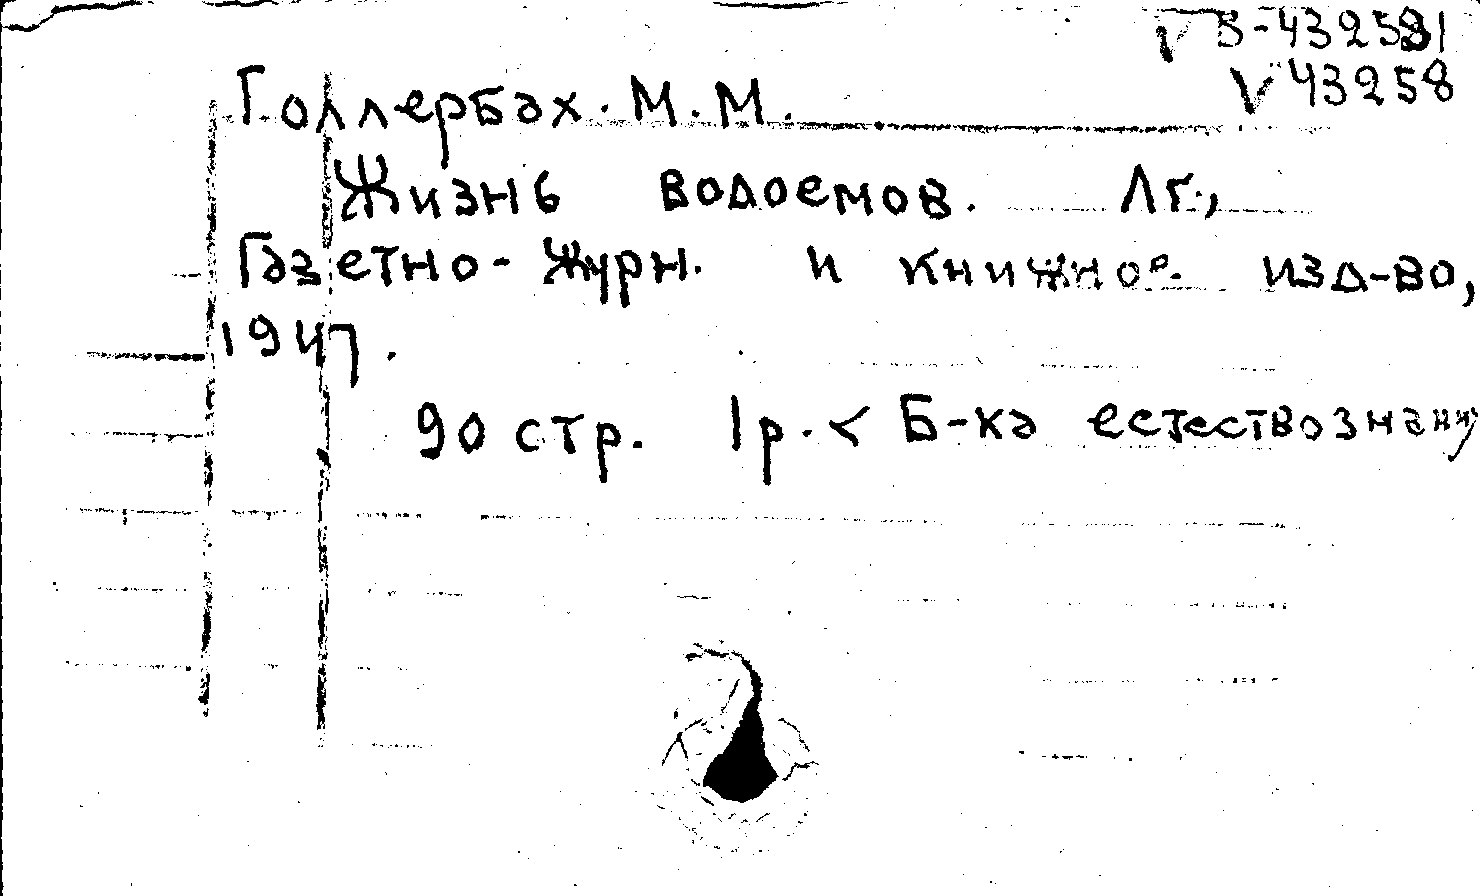 V 43258
Голлербах. М. М.
Жизнь водоемов. Лг.,
Газетно-журн. и книжное изд-во,
1947.
90 стр. 1р. < Б-ка естествознания